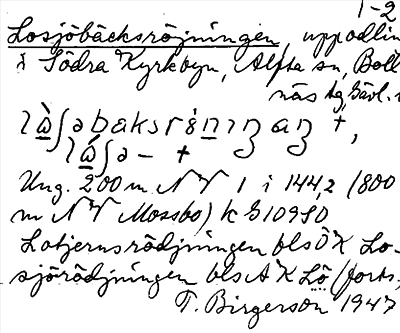 1-2
Losjöbäcksröjningen, uppodlin
i Södra Kyrkbyn, Alfta sn, Boll
näs tg, Gävl.
Ung. 200 m NV 1 i 144,2 (800
m NV Mossbo) k G10980
Lotjernsrödjningen bls ÖK Lo-
sjörödjningen bls AK Lö (forts,
T. Birgerson 1947